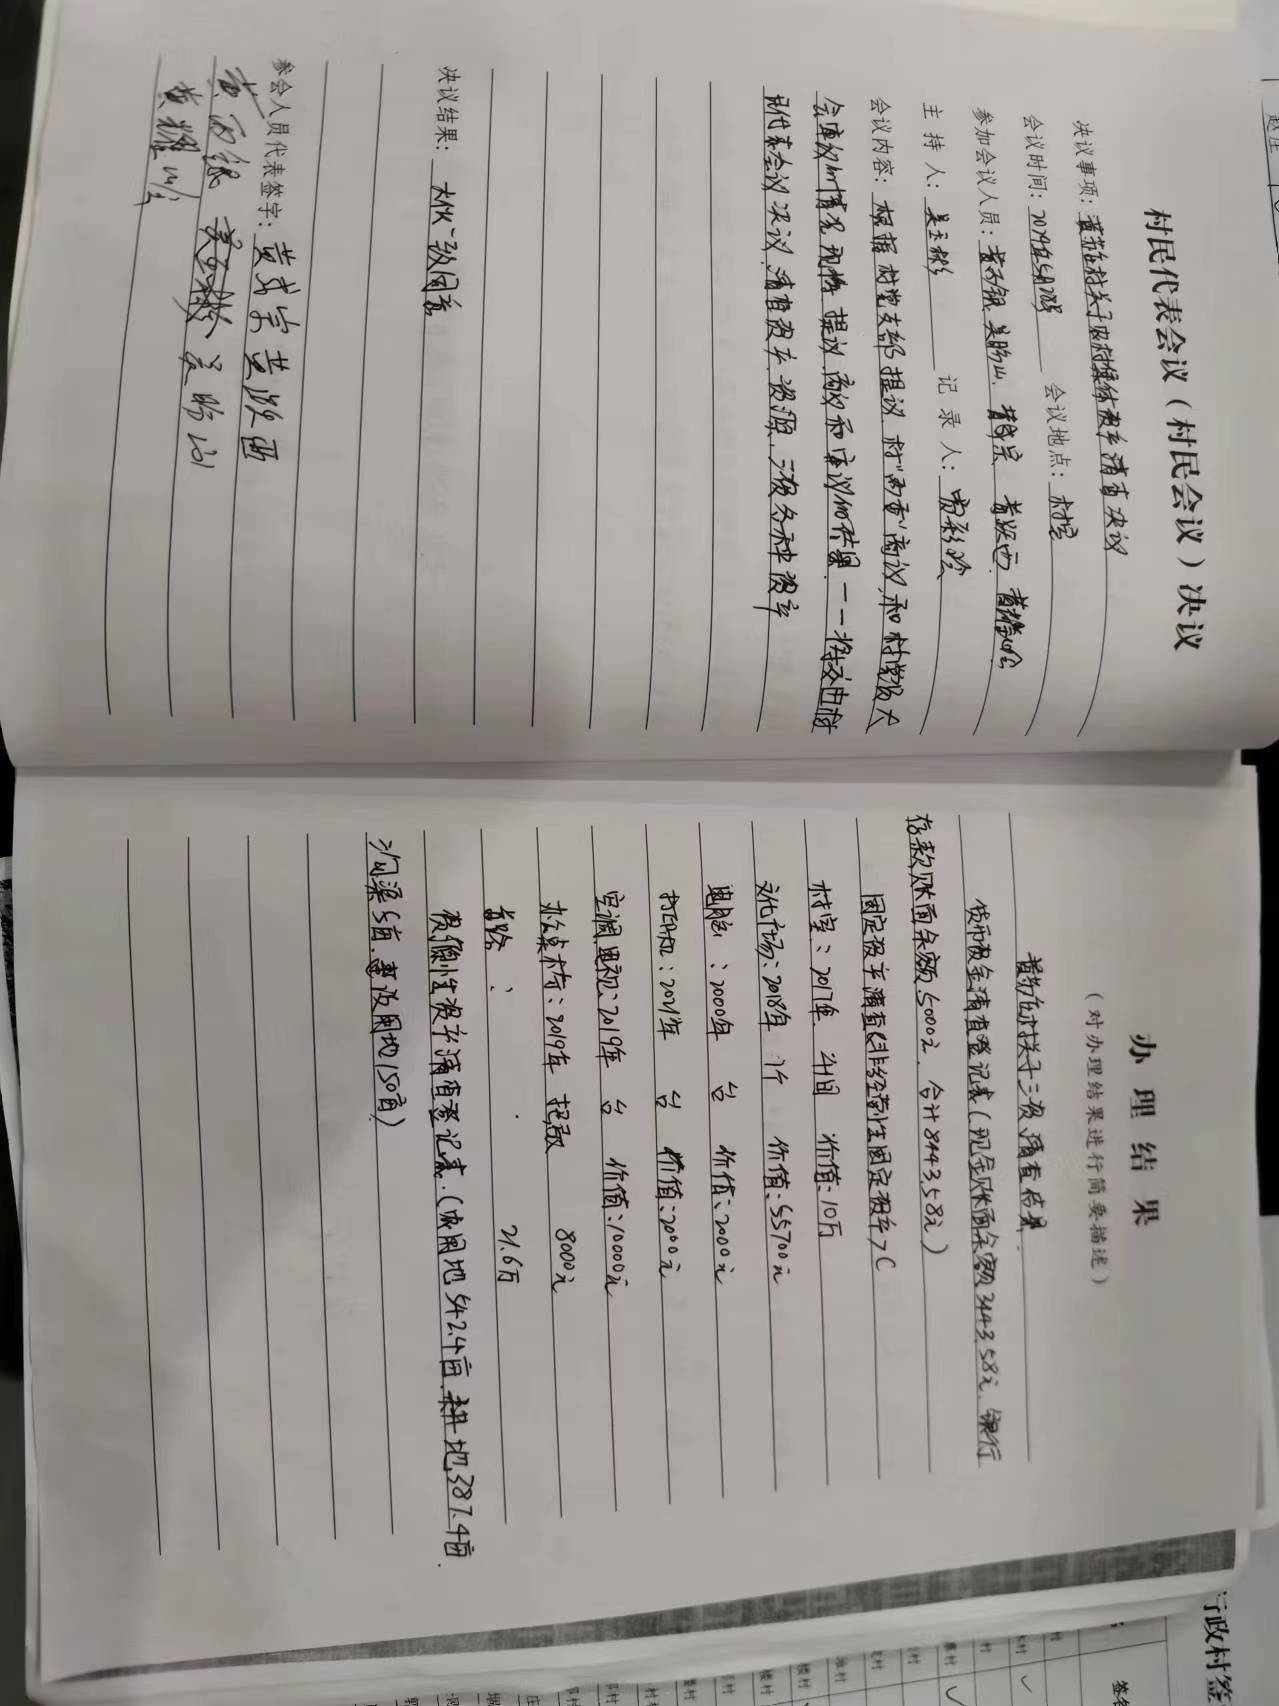 村民代表会议（村民会议）决议
决议事项：黄苏庄村关于农村集体资产清查决议
会议时间：2019年5月28号 会议地点：村室
参加会议人员：黄丙银 吴盼山 黄成宗 黄跃西 黄耀
主持人：吴玉彬 记录人：
会议内容：根据村党支部提议 村“两委”商议，和村党员大
会审议的情况现将提议 商议和审议的结果一一 移交由村
民代表会议决议，清查资产，资源，三资各种资产
决议结果：大伙一致同意
参会人员代表签字：黄成宗 黄跃西
黄丙银 吴盼山
黄耀
办理结果
（对办理结果进行简要描述）
黄苏庄村关于三资清查结果
货币资金清查登记表（现金账面余额3443.58元，银行
存款账面余额5000元，合计8443.58元）
固定资产清查（非经营性固定资产）
村室：2017年 4间 价值：10万
文化广场：2018年 1个 价值：55700元
电脑：2000年 台 价值：2000元
打印机：2021年 台 价值：2000元
空调，电视：2019年 台 价值：10000元
桌椅：2019年 8000元
路： 21.6万
资源性资产清查登记表（农用地542.4亩，耕地387.4亩，
沟渠5亩，建设用地150亩）
行政村签